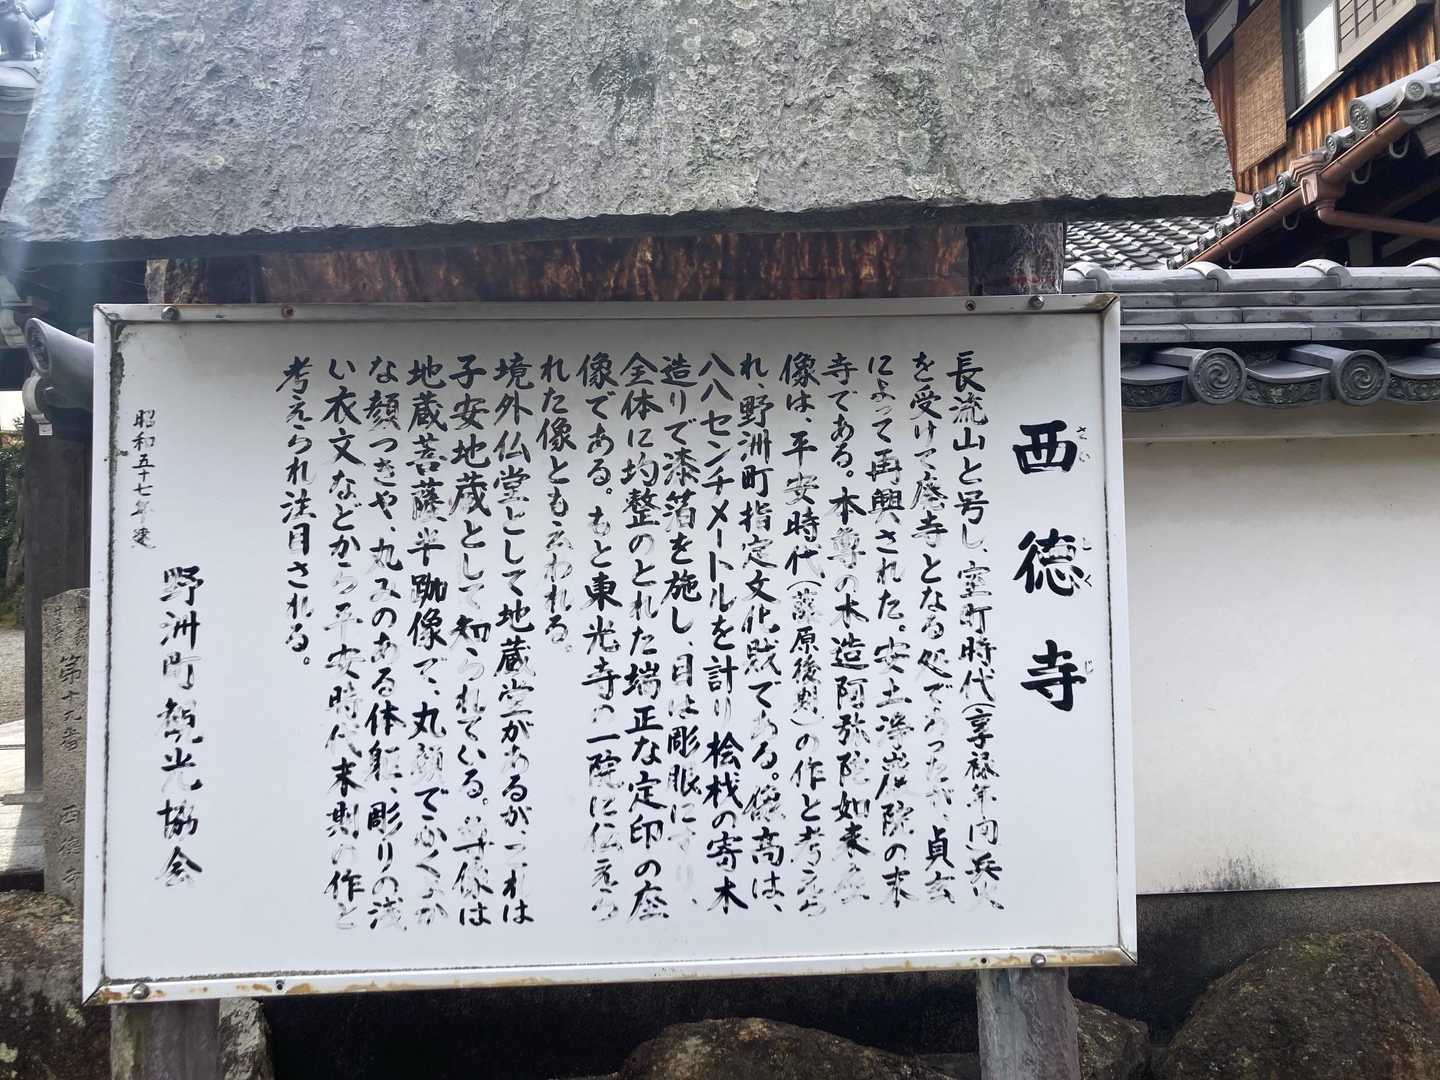 西徳寺
さいとくじ
長流山と号し、室町時代(享禄年間)兵火
を受けて廃寺となる処であったが、貞玄
によって再興された。安土浄厳院の末
寺である。本尊の木造阿弥陀如来坐
像は、平安時代、(藤原後期)の作と考えら
れ、野洲町指定文化財である。像高は、
八八センチメートルを計り桧材の寄木
造りで漆箔を施し、目は彫眼に
全体に均整のとれた端正な定印の座
像である。もと東光寺の一院に伝えら
れた像ともいわれる。
境外仏堂として地蔵堂があるが、これは
子安地蔵として知られている。尊像は
地蔵菩薩半跏像で、丸顔でふくよか
な顔つきや、丸みのある体躯、彫りの浅
い衣文などから平安時代末期の作と
考えられ注目される。
昭和五十七年建
野洲町観光協会
第十九番 西徳寺